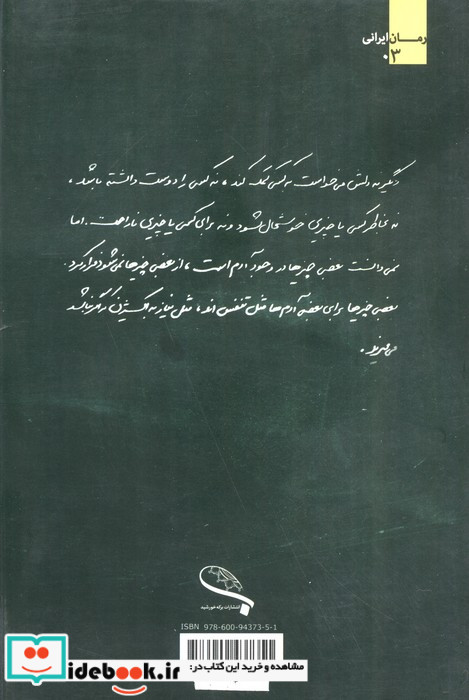 رمــان ایرانی
۰۳
دیگر نه دلش می‌خواست به کسی تکیه کند، نه کسی را دوست داشته باشد،
نه بخاطر کسی یا چیزی خوشحال بشود و نه برای کسی یا چیزی ناراحت. اما
نمی‌دانست بعضی چیزها در وجود آدم است، از بعضی چیزها نمی‌شود فرار کرد.
بعضی چیزها برای بعضی آدم‌ها مثل تنفس‌اند، مثل نیاز به اکسیژن که اگر نباشد
می‌میرند.
انتشارات براه خورشید
ISBN 978-600-94373-5-1
مشاهده و خرید این کتاب در:
idebook.ir